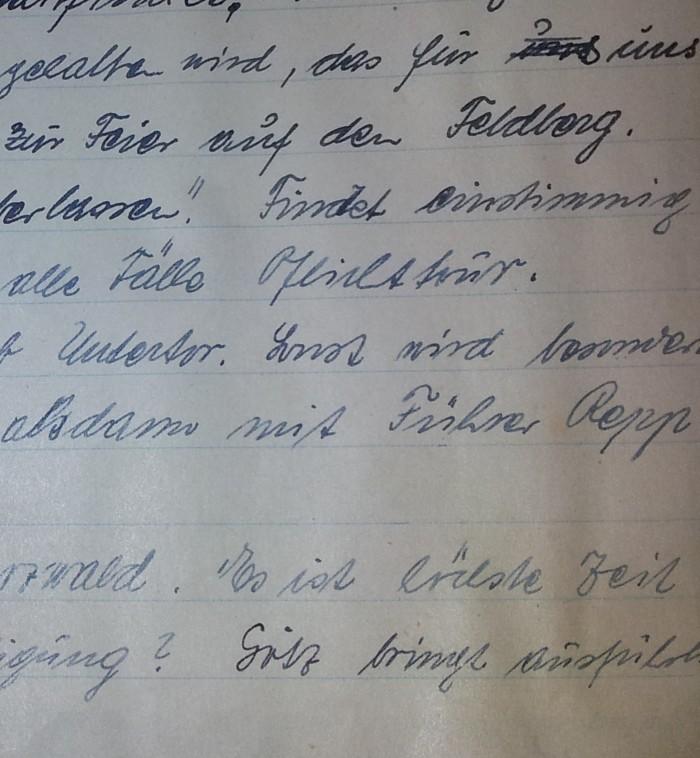 gehalten wird, das für uns
zur Feier auf den Feldberg.
verlassen". Findet einstimmig
alle Fälle Pflichttour.
Untertor. Sonst wird besonder
alsdann mit Führer Repp
rzwald. "Es ist höchste Zeit
igung? Götz bringt ausführl